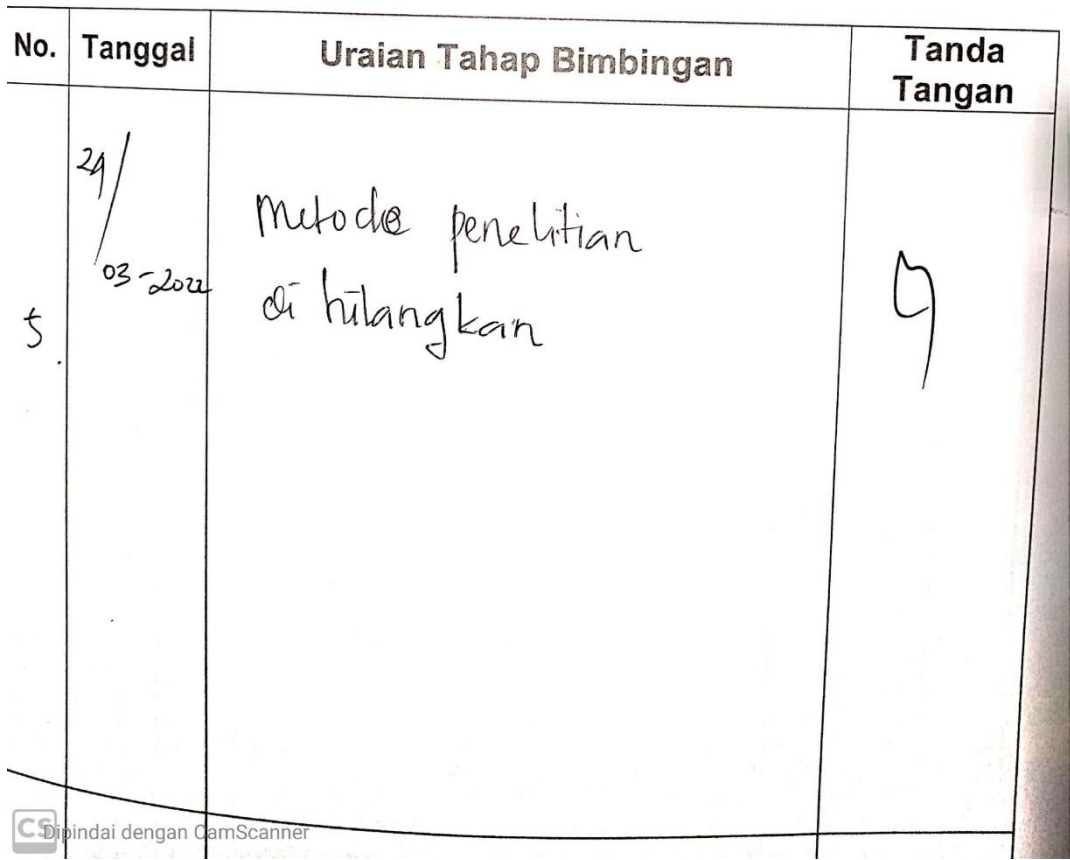 No. Tanggal Uraian Tahap Bimbingan Tanda
Tangan
5.
03-2022
Metode penelitian
di hilangkan
CS Dipindai dengan CamScanner